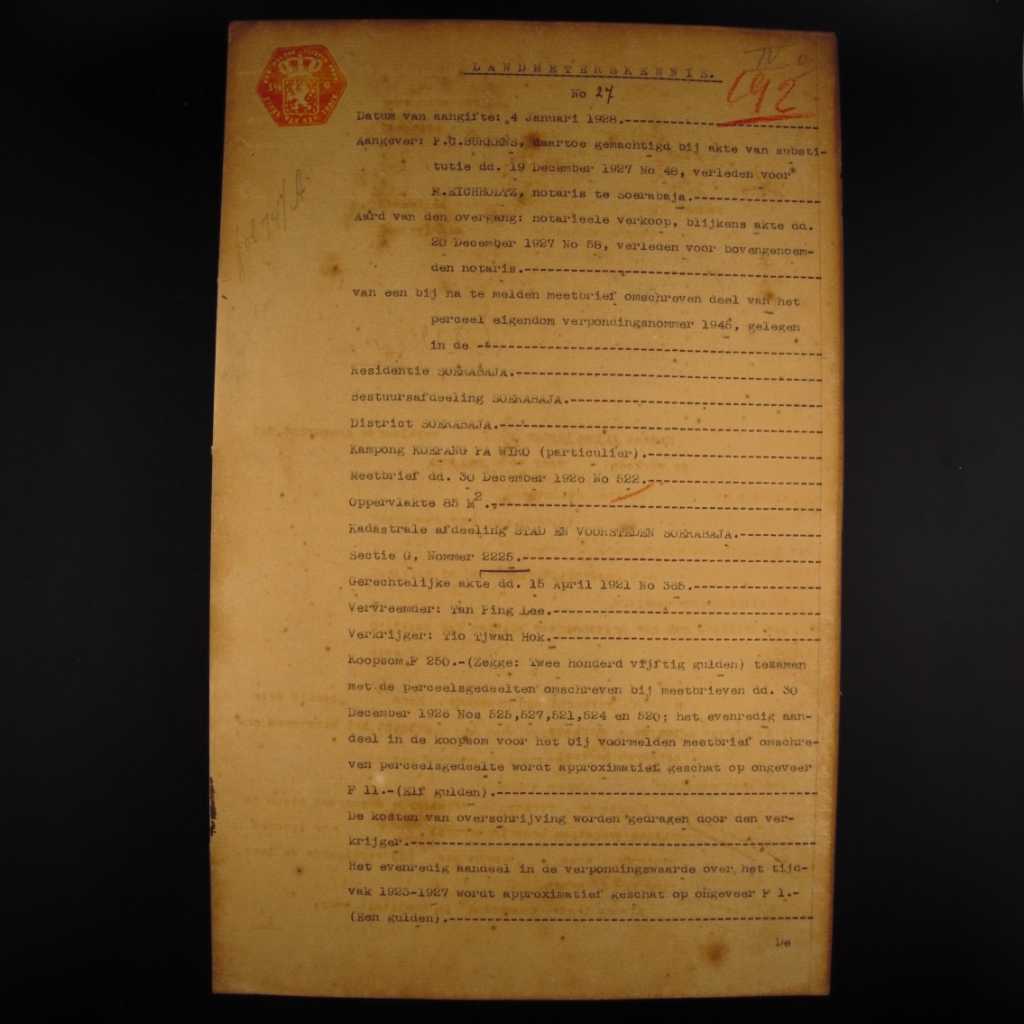 LANDMETERSKENNIS.
No 27
192
Datum van aangifte: 4 Januari 1928.
Aangever: daartoe gemachtigd bij akte van substi-
tutie dd. 19 December 1927 No 48, verleden voor
notaris te Soerabaja.
Aard van den overgang: notarieele verkoop, blijkens akte dd.
20 December 1927 No 58, verleden voor bovengenoem-
den notaris.
van een bij na te melden meetbrief omschreven deel van het
perceel eigendom verpondingsnommer 1948, gelegen
in de
Residentie SOERABAJA.
Bestuursafdeeling SOERABAJA.
District SOERABAJA.
Kampong KOEPANG PA WIRO (particulier).
Meetbrief dd. 30 December 1926 No 522.
Oppervlakte 85 M2.
Kadastrale afdeeling STAD EN VOORSTEDEN SOERABAJA.
Sectie G, Nommer 2225.
Gerechtelijke akte dd. 15 April 1921 No 385.
Vervreemder: Tan Ping Lee.
Verkrijger: Tio Tjwan Hok.
Koopsom F 250.-(Zegge: Twee honderd vijftig gulden) tezamen
met de perceelsgedeelten omschreven bij meetbrieven dd. 30
December 1926 Nos 525,527,521,524 en 520; het evenredig aan-
deel in de koopsom voor het bij voormelden meetbrief omschre-
ven perceelsgedeelte wordt approximatief geschat op ongeveer
F 11.-(Elf gulden).
De kosten van overschrijving worden gedragen door den ver-
krijger.
Het evenredig aandeel in de verpondingswaarde over het tijd-
vak 1925-1927 wordt approximatief geschat op ongeveer F 1.-
(Een gulden).
De